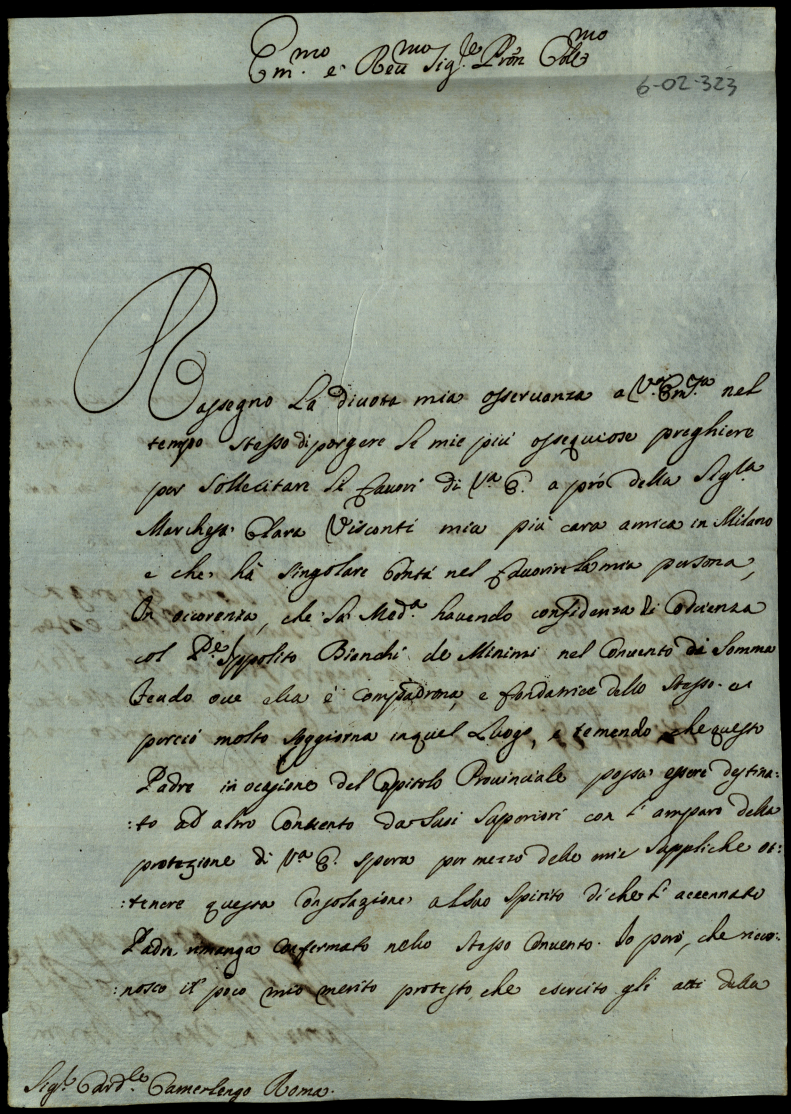 Em.mo e Reu.mo Sig.re Pron Col.mo
6-02-323
Rassegno La diuota mia osseruanza a V.a Em.za nel
tempo stesso di porgere le mie più ossequiose preghiere
per sollecitare li fauori di V.a E. a prò della Sig.la
Marchesa Clara Visconti mia più cara amica in Milano
e che hà singolare bontà nel fauorire la mia persona,
In ocorenza, che la Med.a hauendo confidenza di Coscienza
col P.re Ippolito Bianchi de Minimi nel Conuento di Somma
feudo oue ella è compadrona, e fondatrice dello stesso. e
perciò molto soggiorna in quel Luogo, e temendo che questo
Padre in ocasione del Capitolo Prouinciale possa essere destina:
:to ad altro Conuento da Suoi Superiori con l'amparo della
protezione di V.a E. spera per mezzo delle mie suppliche ot:
:tenere questa Consolazione al suo spirito di che l'accennato
Padre rimanga confermato nello stesso Conuento. Io però, che rico:
:nosco il poco mio merito protesto, che esercito gli atti della
Sig.r Card.le Camerlengo Roma.